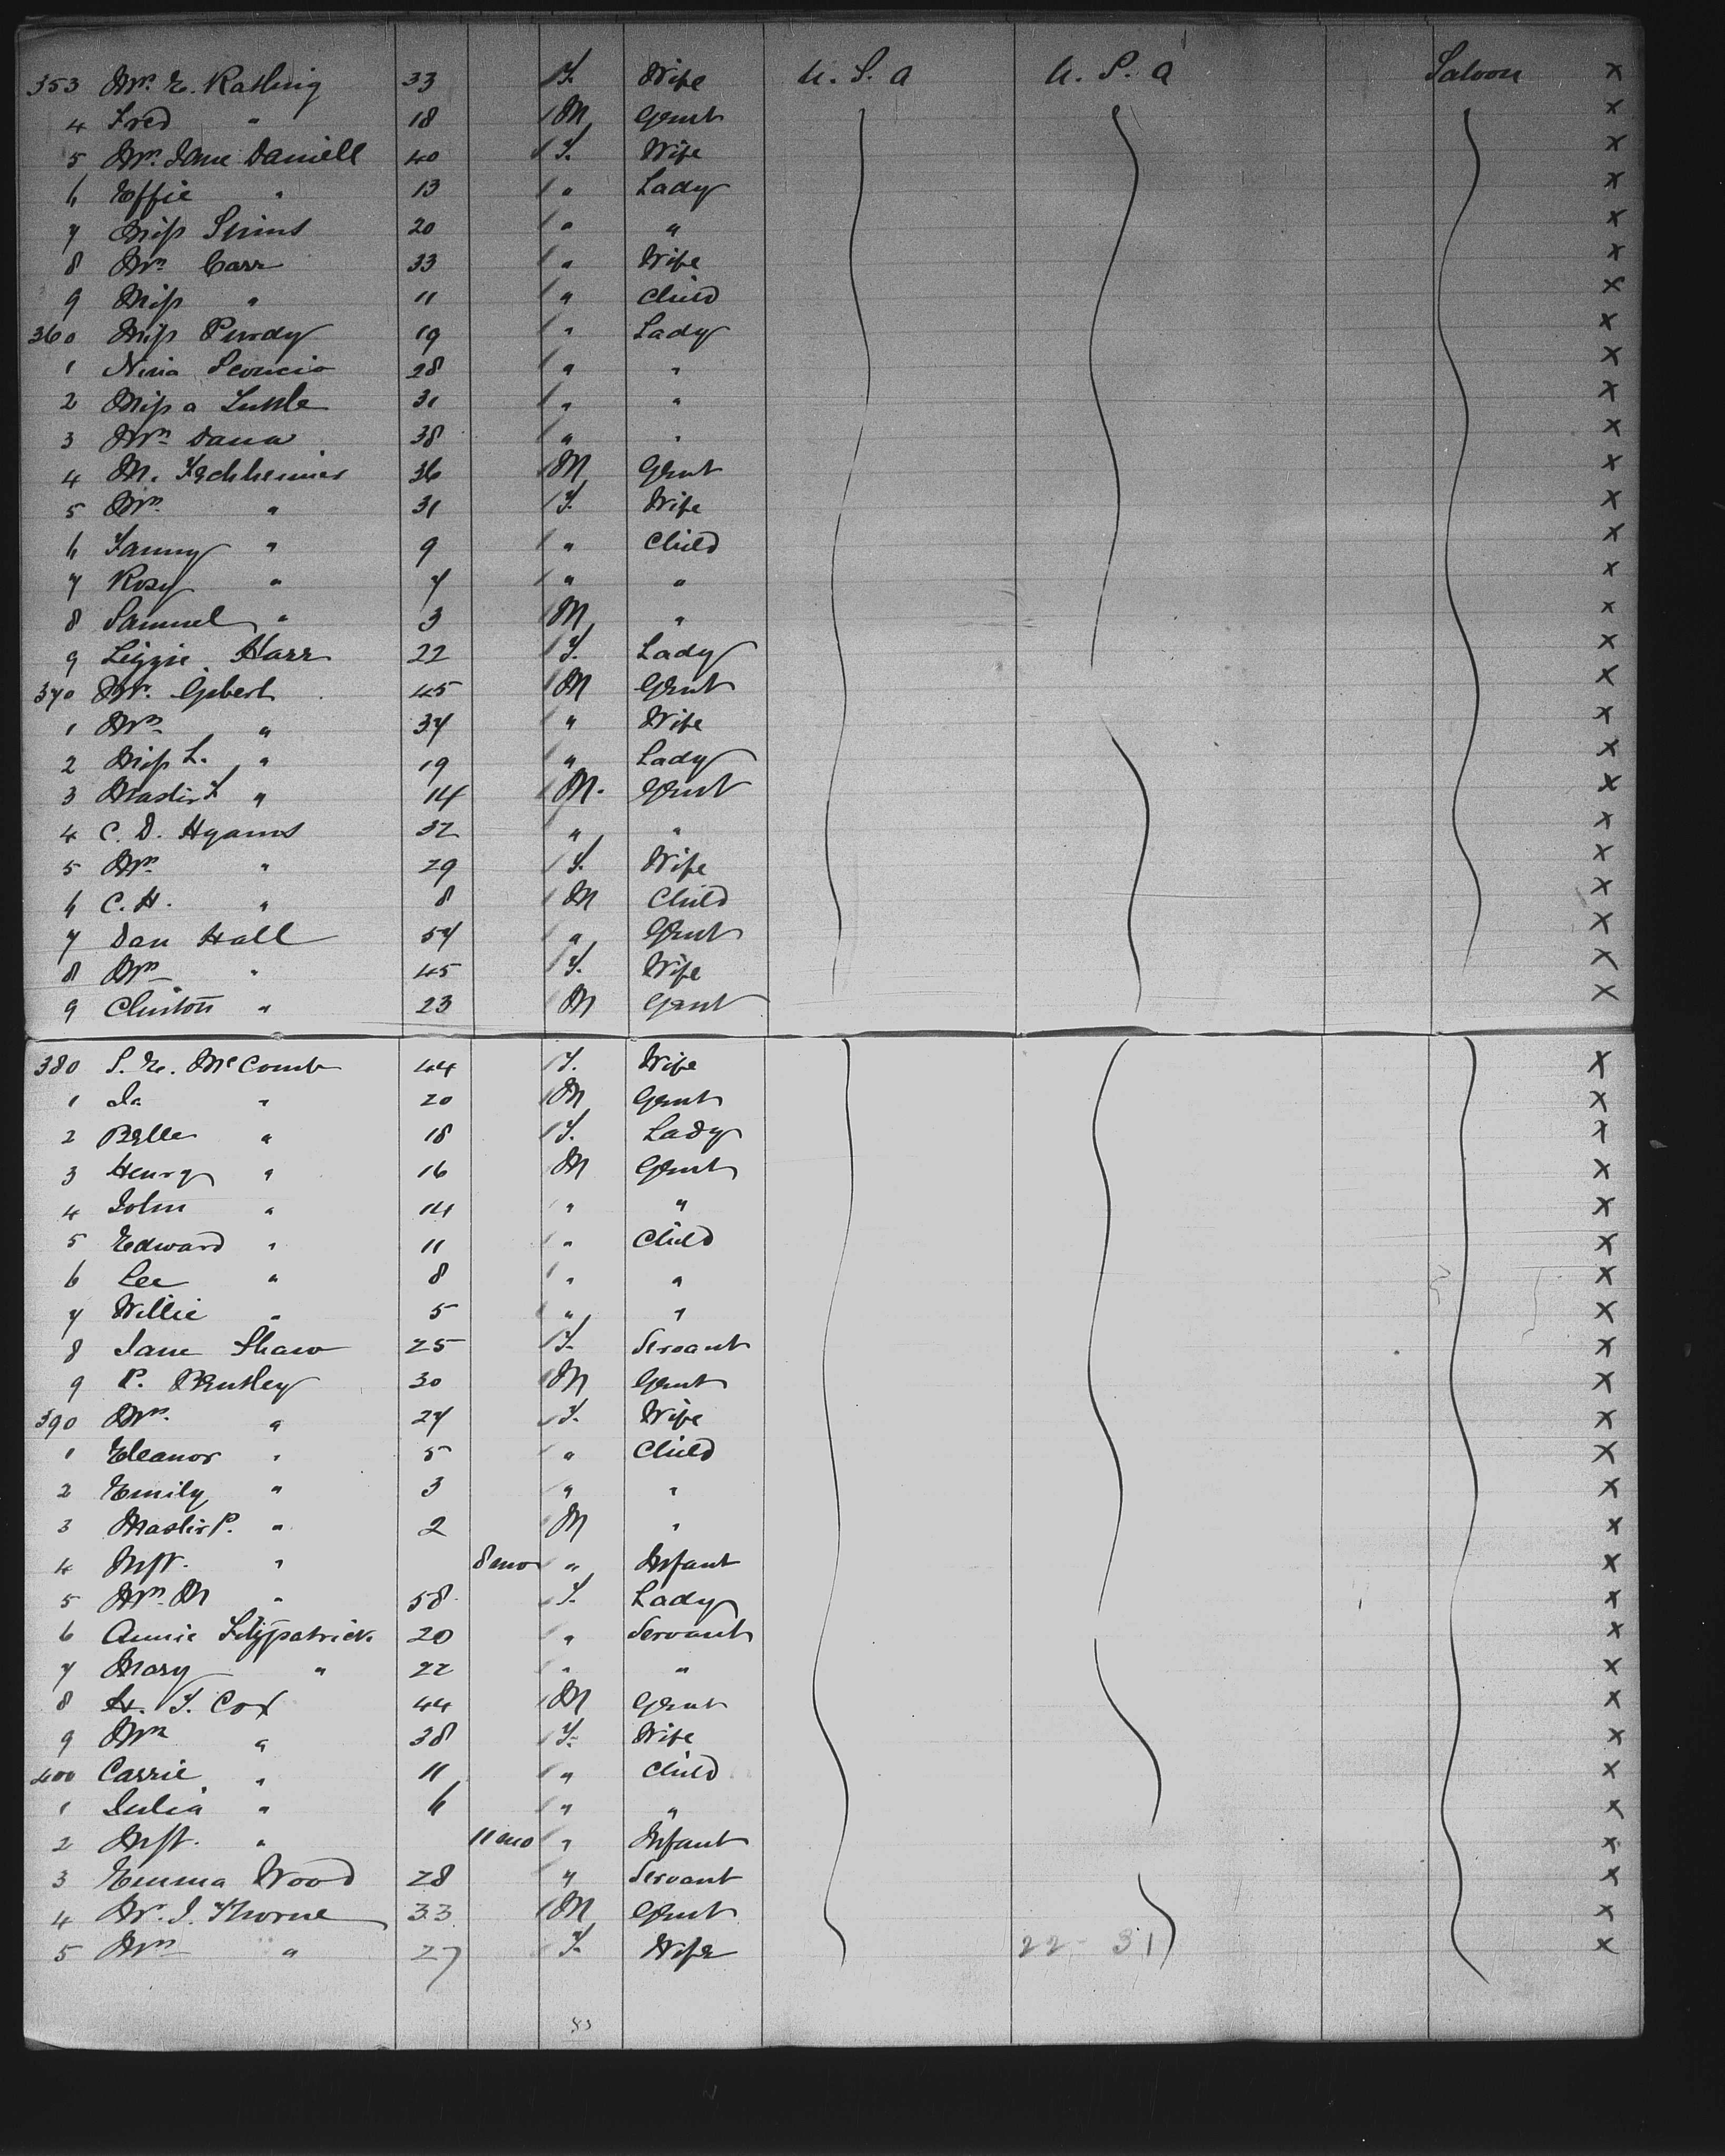 353 Mrs. E. Rathing 33 F. Wife U. S. A U. S. A Saloon X
4 Fred " 18 M Gent X
5 Mrs. Jane Daniell 40 F. Wife X
6 Effie " 13 " Lady X
7 Miss Simms 20 " " X
8 Mrs Carr 33 " Wife X
9 Miss " 11 " Child X
360 Miss Purdy 19 " Lady X
1 Nina 28 " " X
2 Miss A Tuttle 31 " " X
3 Mrs Dana 38 " " X
4 M. Fechheimer 36 M Gent X
5 Mrs " 31 F. Wife X
6 Fanny " 9 " Child X
7 Rosy " 7 " " X
8 Samuel " 3 M " X
9 Lizzie Harr 22 F. Lady X
370 Mr. Gibert 45 M Gent X
1 Mrs " 37 " Wife X
2 Miss L. " 19 " Lady X
3 Master F " 14 M. Gent X
4 C. D. Hyams 32 " " X
5 Mrs " 29 F. Wife X
6 C. H. " 8 M Child X
7 Dan Hall 57 " Gent X
8 Mrs " 45 F. Wife X
9 Clinton " 23 M Gent X
380 S. E. McComb 44 F. Wife X
1 Ja " 20 M Gent X
2 Belle " 18 F. Lady X
3 Henry " 16 M Gent X
4 John " 14 " " X
5 Edward " 11 " Child X
6 Lee " 8 " " X
7 Willie " 5 " " X
8 Jane Shaw 25 F. Servant X
9 P. Bentley 30 M Gent X
390 Mrs. " 27 F. Wife X
1 Eleanor " 5 " Child X
2 Emily " 3 " " X
3 Master P. " 2 M " X
4 Inft. " 8 mo " Infant X
5 Mrs. M " 58 F. Lady X
6 Annie Fitzpatrick 20 " Servant X
7 Mary " 22 " " X
8 H. F. Cox 44 M Gent X
9 Mrs " 38 F. Wife X
400 Carrie " 11 " Child X
1 Julia " 6 " " X
2 Inft. " 11 mo " Infant X
3 Emma Wood 28 " Servant X
4 W. J. Thorne 33 M Gent X
5 Mrs " 27 F. Wife 22 - 31 X